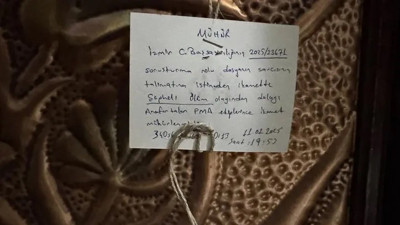 MÜHÜR
İzmir C. Başsavcılığının 2025/21671
soruşturma nolu dosyası savcının
talimatına istinaden ikamette
Şüpheli Ölüm olayından dolayı
PMA ekiplerince ikamet
mühürlenmiştir
12.02.2025
Saat: 19:53